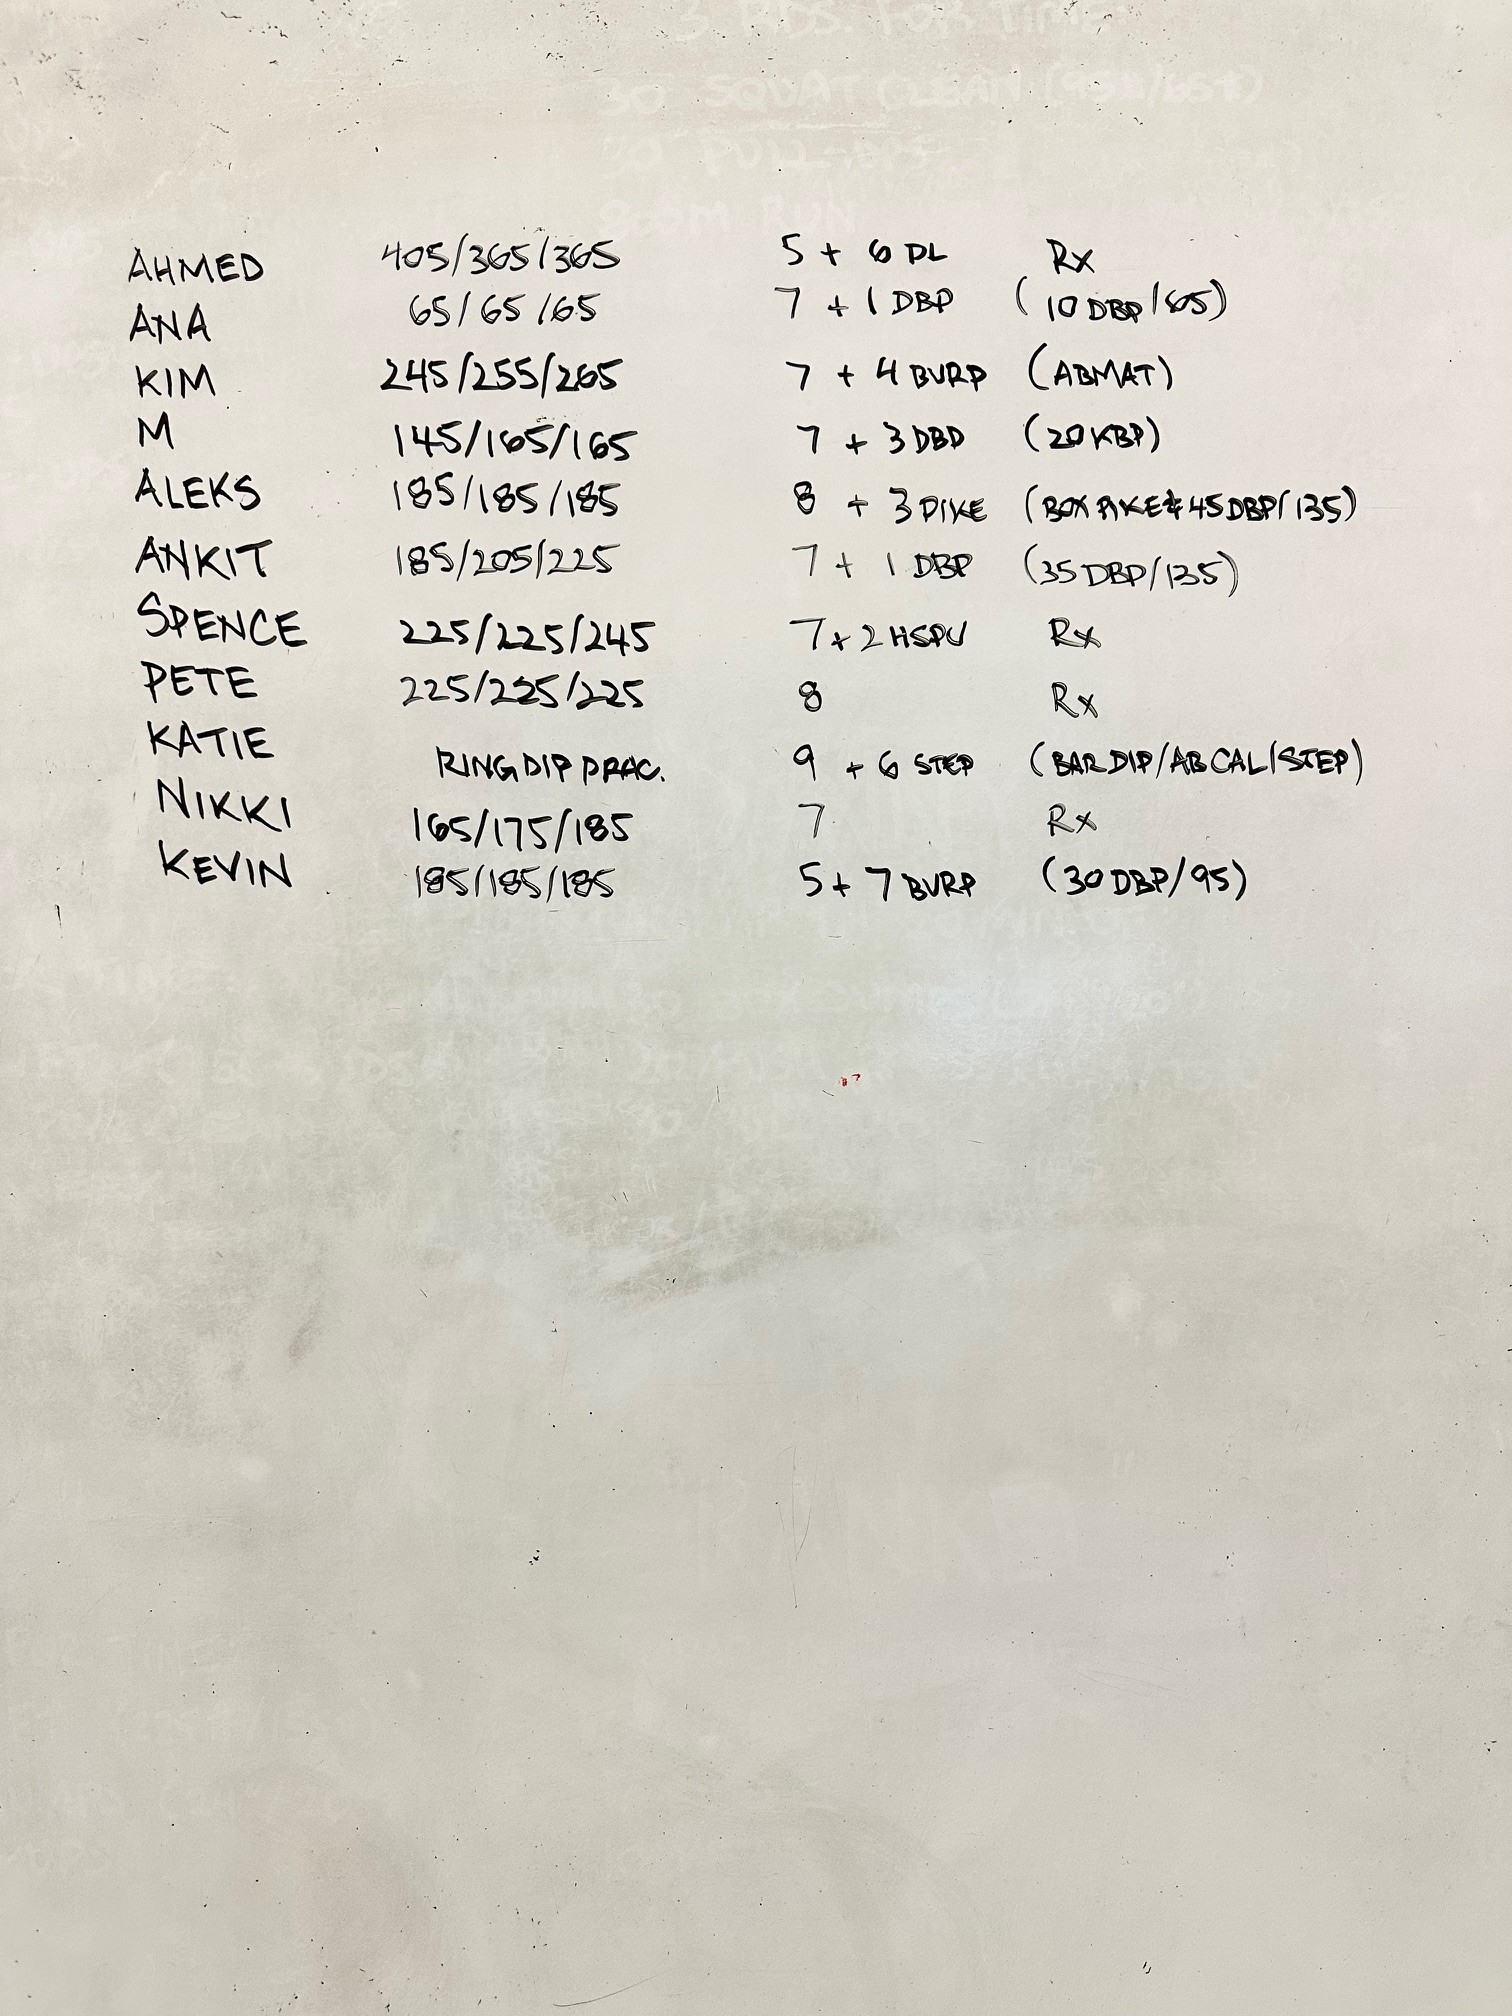 3 RDS. FOR TIME
30 SQUAT CLEAN
30 PULL-UPS
800M RUN
AHMED 405/365/365 5 + 6 DL Rx
ANA 65/65/65 7 + 1 DBP (10 DBP/65)
KIM 245/255/265 7 + 4 BURP (ABMAT)
M 145/165/165 7 + 3 DBP (20 KBP)
ALEKS 185/185/185 8 + 3 PIKE (BOX PIKE & 45 DBP/135)
ANKIT 185/205/225 7 + 1 DBP (35 DBP/135)
SPENCE 225/225/245 7 + 2 HSPU Rx
PETE 225/225/225 8 Rx
KATIE RING DIP PRAC. 9 + 6 STEP (BAR DIP/AB CAL/STEP)
NIKKI 165/175/185 7 Rx
KEVIN 185/185/185 5 + 7 BURP (30 DBP/95)